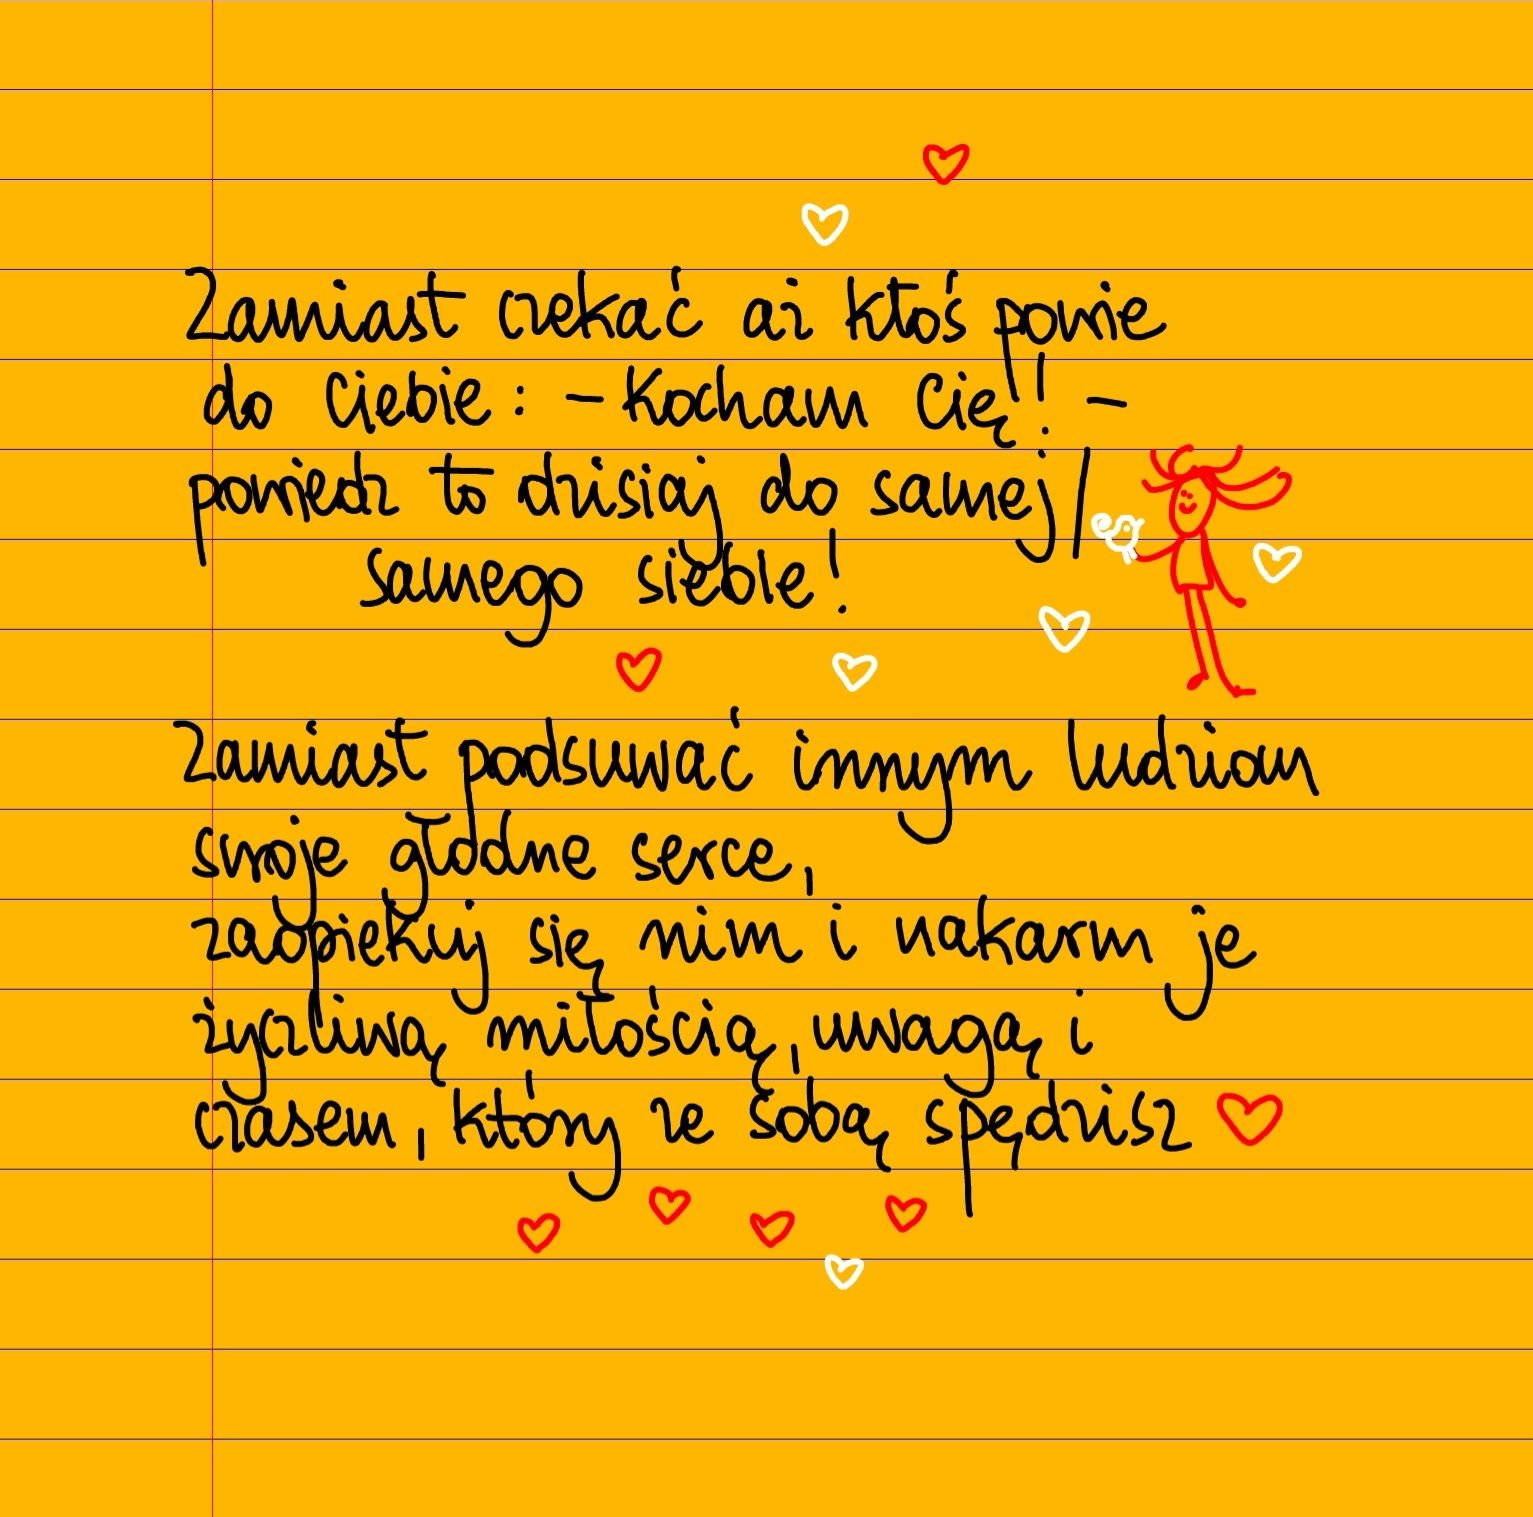 Zamiast czekać aż ktoś powie
do Ciebie: - Kocham Cię! -
powiedz to dzisiaj do samej/
samego siebie!
Zamiast podsuwać innym ludziom
swoje głodne serce,
zaopiekuj się nim i nakarm je
życzliwą miłością, uwagą i
czasem, który ze sobą spędzisz